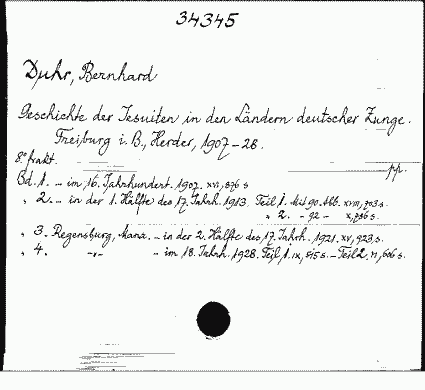 34345
Duhr, Bernhard
Geschichte der Jesuiten in den Ländern deutscher Zunge.
Freiburg i. B., Herder, 1907-28.
8° frakt.
pp.
Bd. 1. - im 16. Jahrhundert. 1907. XVI, 876 s
" 2. - in der 1. Hälfte des 17. Jahrh. 1913. Teil 1. Mit 90 Abb. XVIII, 703 s.
" 2. - 92 - X, 786 s.
" 3. Regensburg, Manz. - in der 2. Hälfte des 17. Jahrh. 1921. XV, 923 s.
" 4. -"- - im 18. Jahrh. 1928. Teil 1. IX, 515 s. - Teil 2. XI, 606 s.